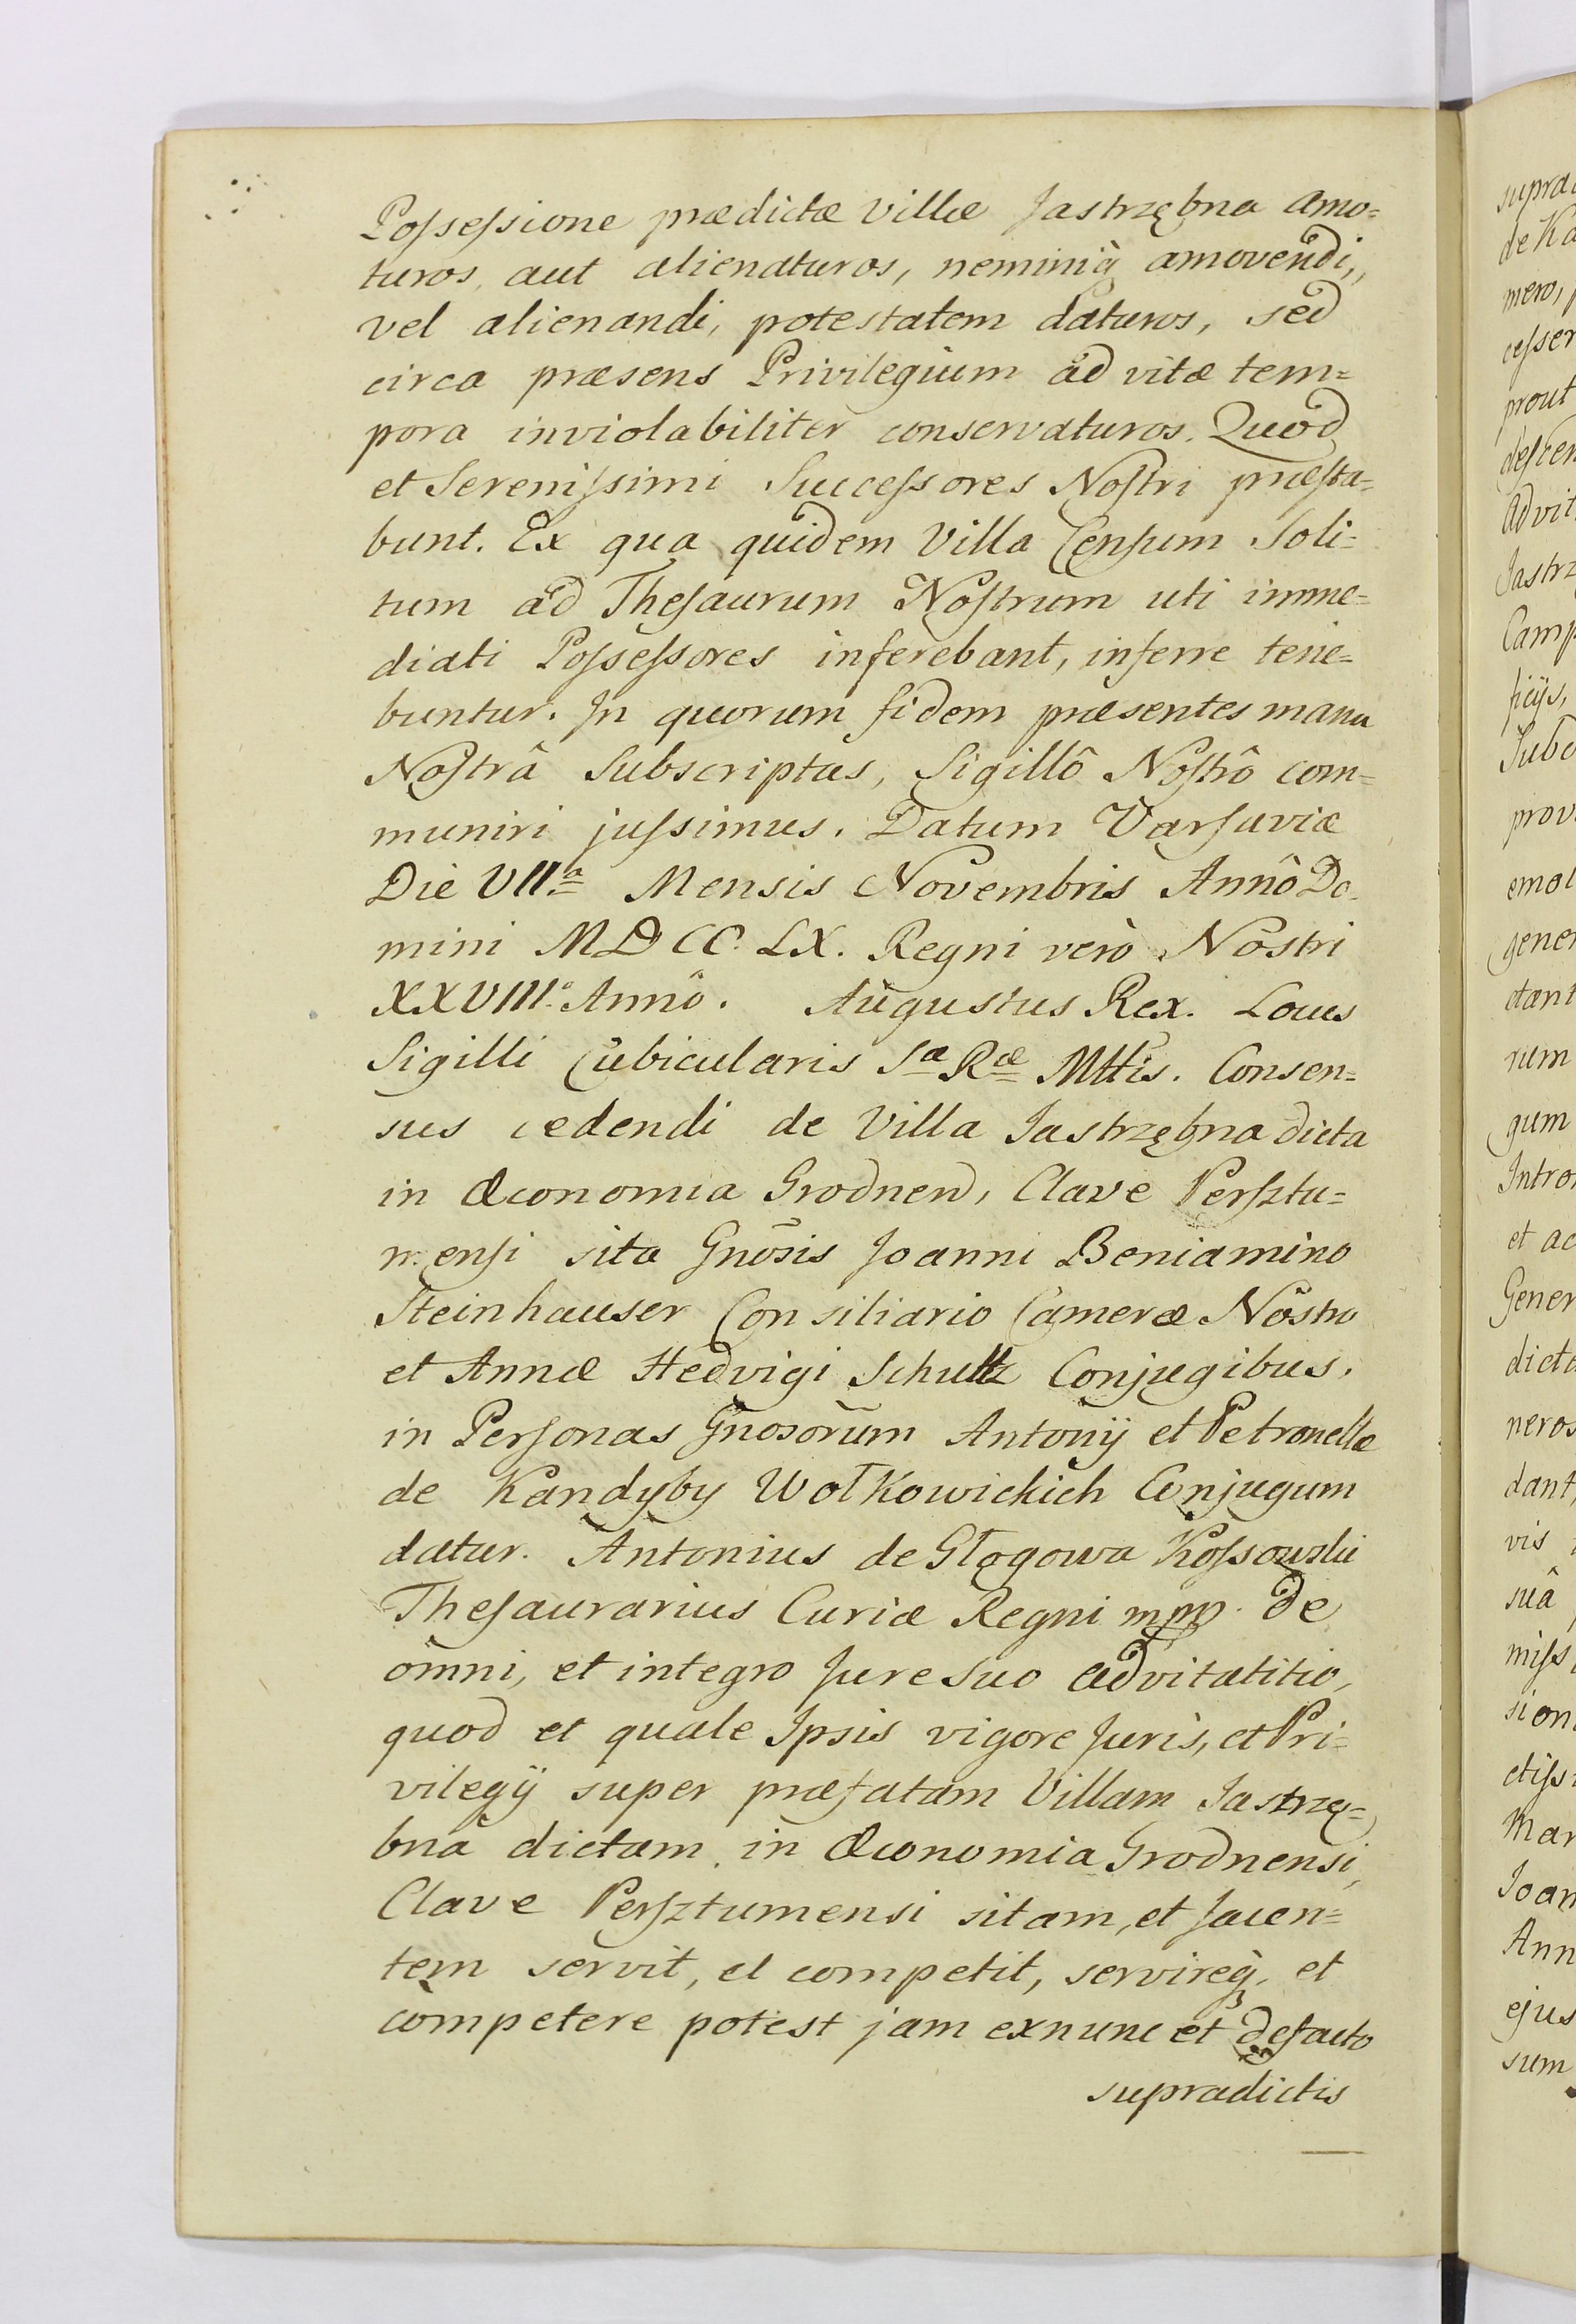 Poſseſsione prædictæ Villæ Jastrzębna amo=
turos, aut alienaturos, neminiq̀ amovendi,
vel alienandi, potestatem daturos, sed
circa præsens Privilegium ad vitæ tem=
pora inviolabiliter conservaturos. Quod
et Sereniſsimi Succeſsores Noſtri præſta=
bunt. Ex qua quidem Villa Cenſum Soli=
tum ad Theſaurum Noſtrum uti imme=
diati Poſseſsores inferebant, inferre tene=
buntur. In quorum fidem præsentes manu
Noſtrâ Subscriptas, Sigillô Noſtrô com=
muniri juſsimus. Datum Varſaviæ
Die VIIa Mensis Novembris Annô Do=
mini MDCC. LX. Regni verò Nostri
XXVIIIo Annô. Augustus Rex. Locus
Sigilli Cubicularis Sæ Ræ Mttis. Consen=
sus cedendi de Villa Jastrzębna dicta
in Œconomia Grodnen, Clave Perſztu=
menſi sita Gnosis Joanni Beniamino
Steinhauser Consiliario Cameræ Nostro
et Annæ Hedvigi Schultz Conjugibus,
in Perſonas Gnosorum Antonij et Petronellæ
de Kandyby Wołkowickich Conjugum
datur. Antonius de Głogowa Koſsowski
Theſaurarius Curiæ Regni mpp. de
omni, et integro Jure Suo advitalitio,
quod et quale Ipsis vigore Juris, et Pri=
vilegij super præfatam Villam Jastrzę=
bna dictam, in Œconomia Grodnensi,
Clave Perſztumensi sitam, et Jacen=
tem servit, et competit, servireq̀, et
competere potest jam exnunc et defacto
supradictis
supra
de Ka
mero,
ceſser
prout
deſcen
Advit
Jastrz
Camp
ficijs,
Subd
prov
emol
gener
ctant
rum
gum
Intro
et ac
Gener
dicto
neros
dant,
vis
suâ
miſs
sion
ctiſs
Mar
Joan
Ann
ejus
sum